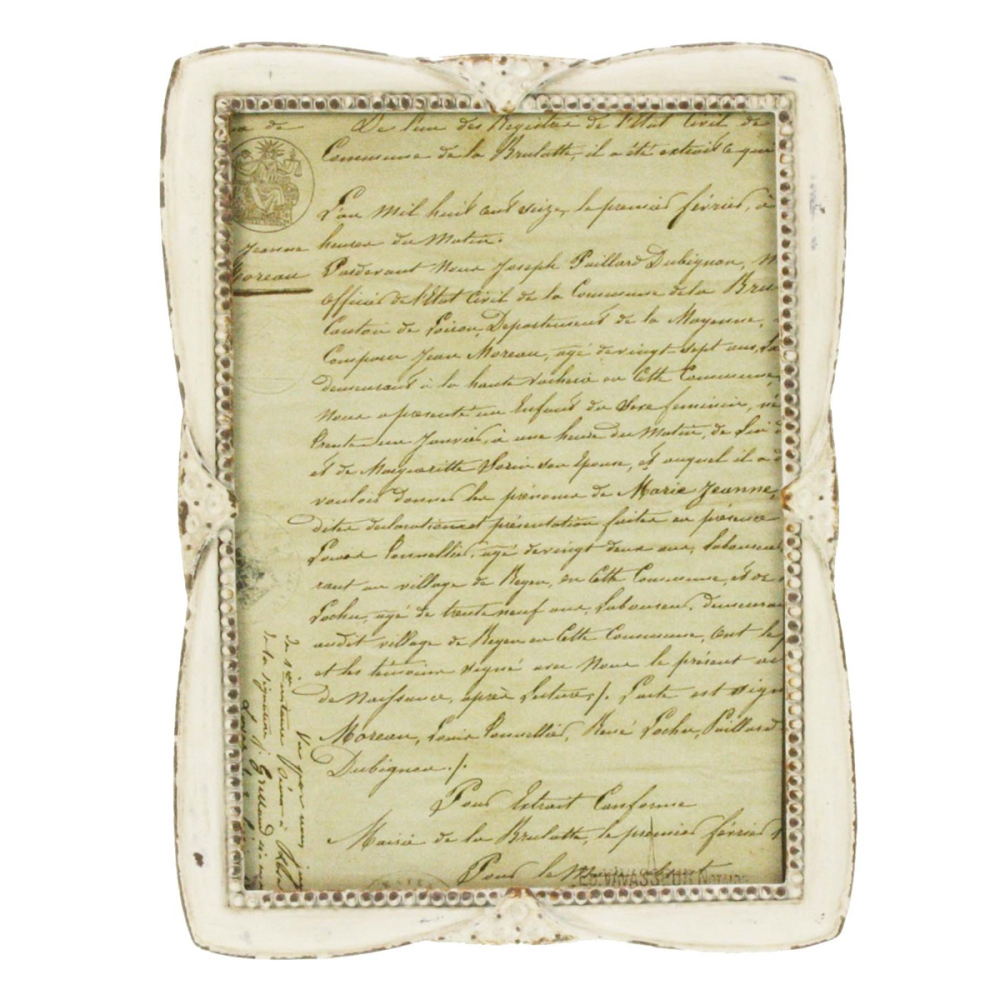 De l'un des Registres de l'Etat Civil de
Commune de la Brulatte, il a été extrait ce que
L'an mil huit cent seize, le premier février, à
Jeanne
heures du matin.
Moreau
Pardevant Nous Joseph Paillard Dubignon,
officier de l'Etat Civil de la Commune de la Bru
Canton de Loiron, Département de la Mayenne,
Comparu Jean Moreau, agé de vingt sept ans, La
demeurant à la haute Vacherie en cette Commune
nous a présenté un Enfant du Sexe féminin, né
trente un Janvier, à une heure du Matin, de Lui d
et de Marguerite Morin son Epouse, et auquel il a d
vouloir donner les prénoms de Marie Jeanne,
dites déclaration et présentation faites en présence
Louis agé de vingt deux ans, laboureur
rant au village de en cette Commune, et de
Lochu, agé de trente neuf ans, Laboureur, demeuran
audit village de en cette Commune, ont le p
et les témoins signé avec Nous le présent ac
de Naissance, après Lecture ./. L'acte est sign
Moreau, Louis René Lochu, Paillard
Dubignon ./.
Pour Extrait Conforme
Mairie de la Brulatte, le premier février
Pour le Maire
Vu par nous
de la signature